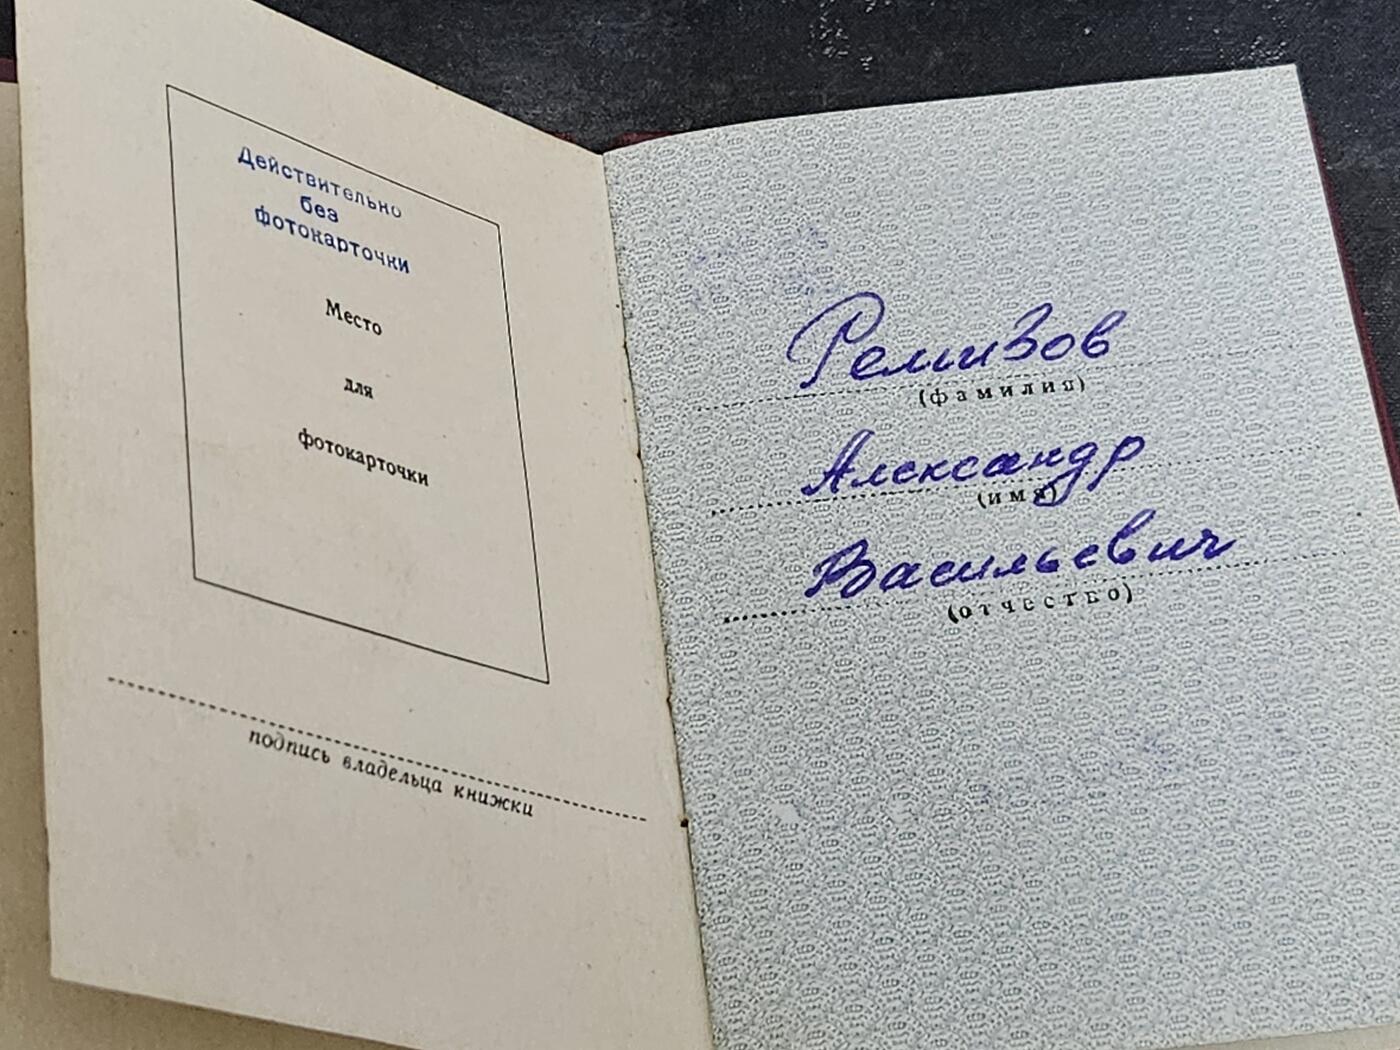 Действительно
без
фотокарточки
Место
для
фотокарточки
подпись владельца книжки
Ремизов
(фамилия)
Александр
(имя)
Васильевич
(отчество)